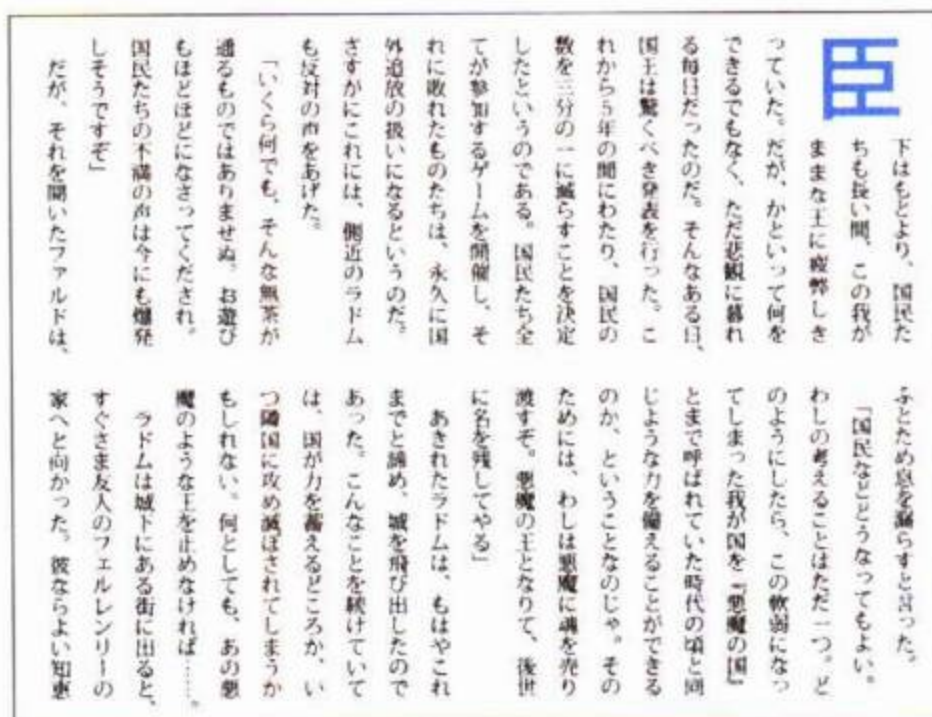 臣下はもとより、国民た
ちも長い間、この我が
ままな王に疲弊しき
っていた。だが、かといって何を
できるでもなく、ただ悲観に暮れ
る毎日だったのだ。そんなある日、
国王は驚くべき発表を行った。こ
れから5年の間にわたり、国民の
数を三分の一に減らすことを決定
したというのである。国民たち全
てが参加するゲームを開催し、そ
れに敗れたものたちは、永久に国
外追放の扱いになるというのだ。
さすがにこれには、側近のラドム
も反対の声をあげた。
「いくら何でも、そんな無茶が
通るものではありませぬ。お遊び
もほどほどになさってくだされ。
国民たちの不満の声は今にも爆発
しそうですぞ」
だが、それを聞いたファルドは、
ふとため息を漏らすと言った。
「国民などどうなってもよい。
わしの考えることはただ一つ。ど
のようにしたら、この軟弱になっ
てしまった我が国を『悪魔の国』
とまで呼ばれていた時代の頃と同
じような力を備えることができる
のか、ということなのじゃ。その
ためには、わしは悪魔に魂を売り
渡すぞ。悪魔の王となりて、後世
に名を残してやる」
あきれたラドムは、もはやこれ
までと諦め、城を飛び出したので
あった。こんなことを続けていて
は、国が力を蓄えるどころか、い
つ隣国に攻め滅ぼされてしまうか
もしれない。何としても、あの悪
魔のような王を止めなければ……。
ラドムは城下にある街に出ると、
すぐさま友人のフェルレンリーの
家へと向かった。彼ならよい知恵